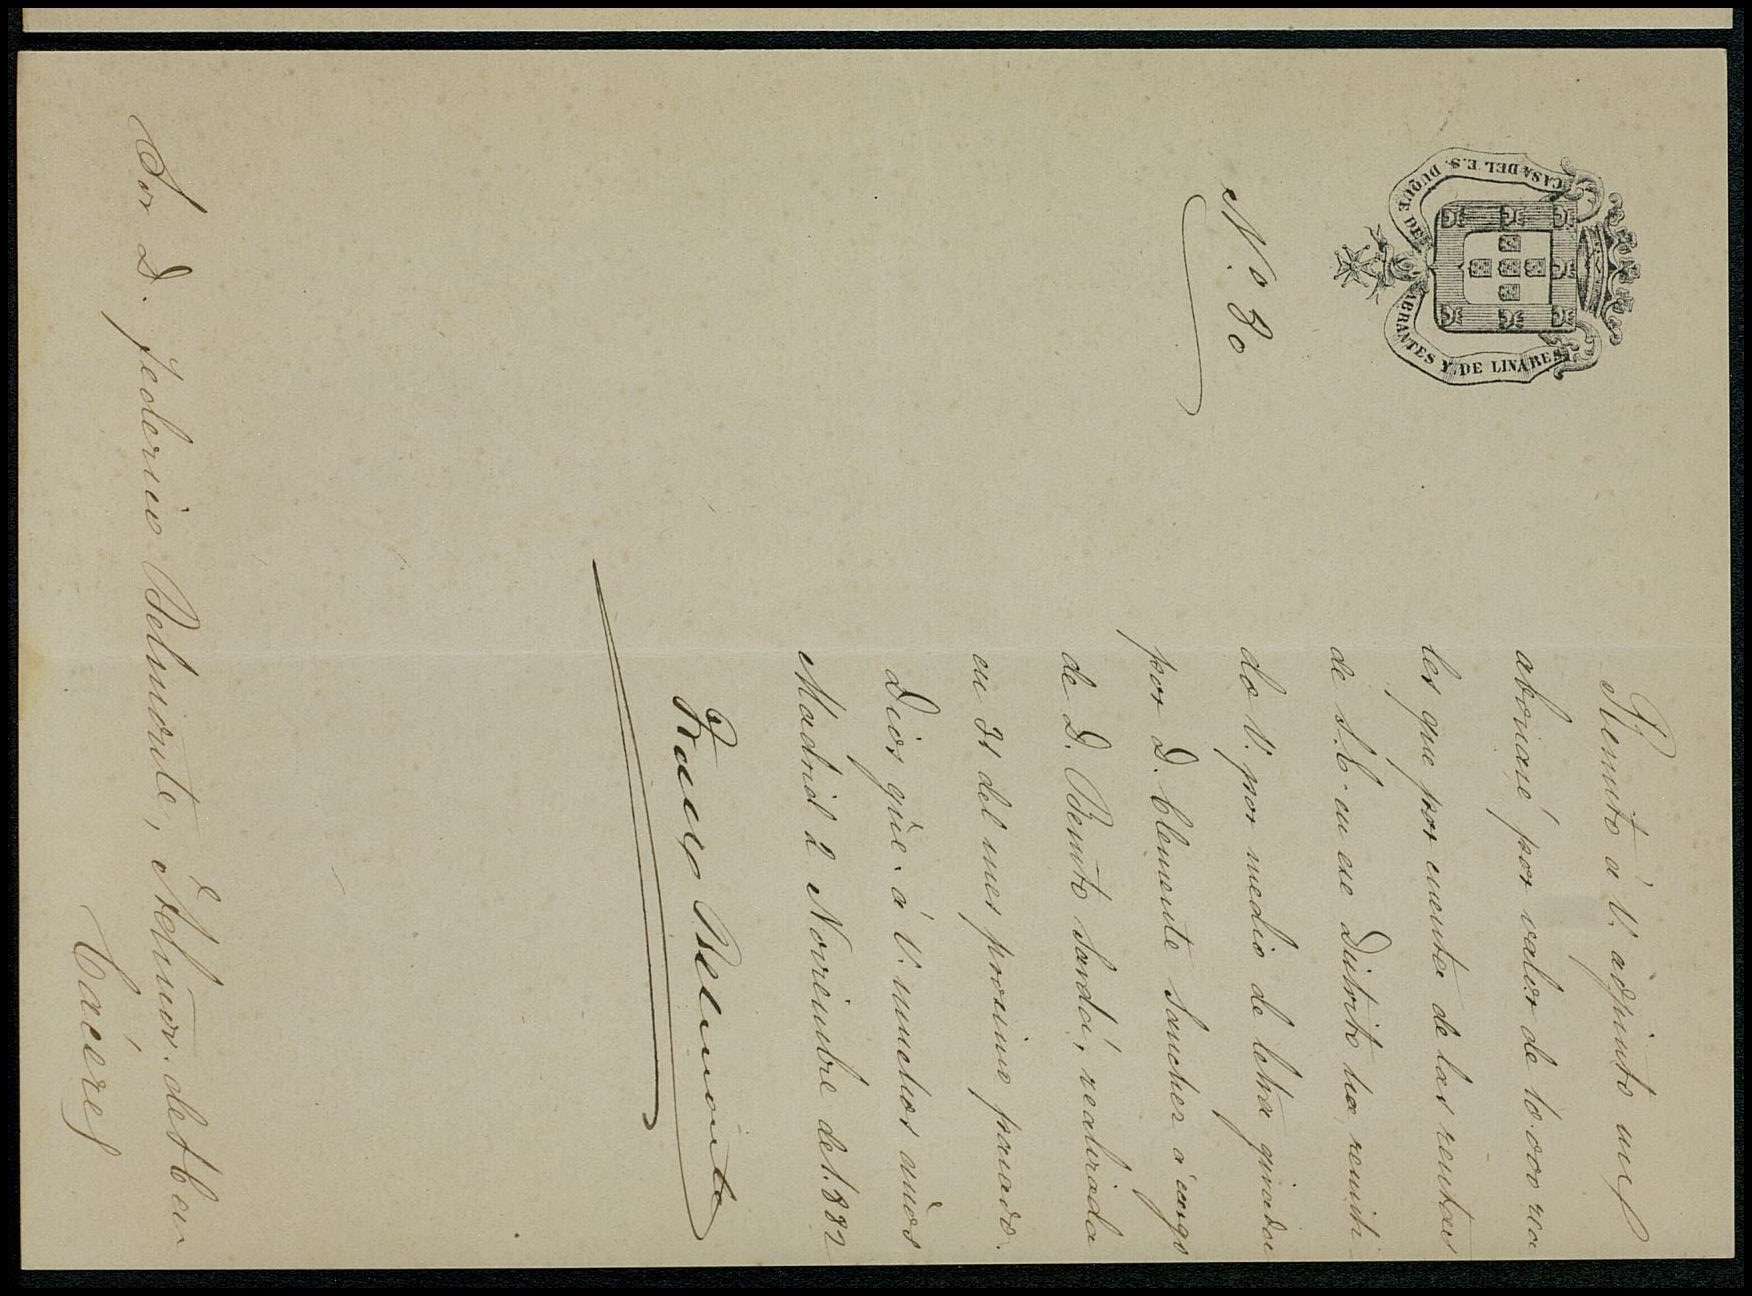 CASA DEL E.S. DUQUE DE ABRANTES Y DE LINARES
N.º 30
Remito á V. adjunto un
abonaré por valor de 10.000 rea
les que por cuenta de las rentas
de S.E. en ese Distrito ha remiti
do V. por medio de letra girada
por D. Clemente Sanchez á cargo
de D. Benito Sardá, realizada
en 31 del mes procimo pasado.
Dios gue. á V. muchos años
Madrid 2 Noviembre de 1.882
Franco Belmonte
Sor D. Federico Belmonte, Admor. de
Cáceres